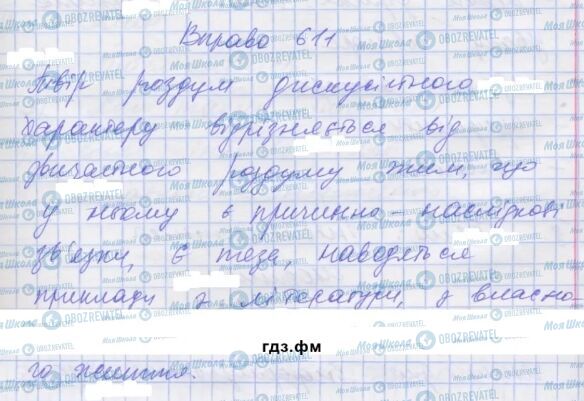 Вправа 611
Твір роздум дискусійного
характеру відрізняється від
звичайного роздуму тим, що
у ньому є причинно-наслідкові
зв'язки, є теза, наводяться
приклади з літератури, з власно
гдз.фм
го життя.